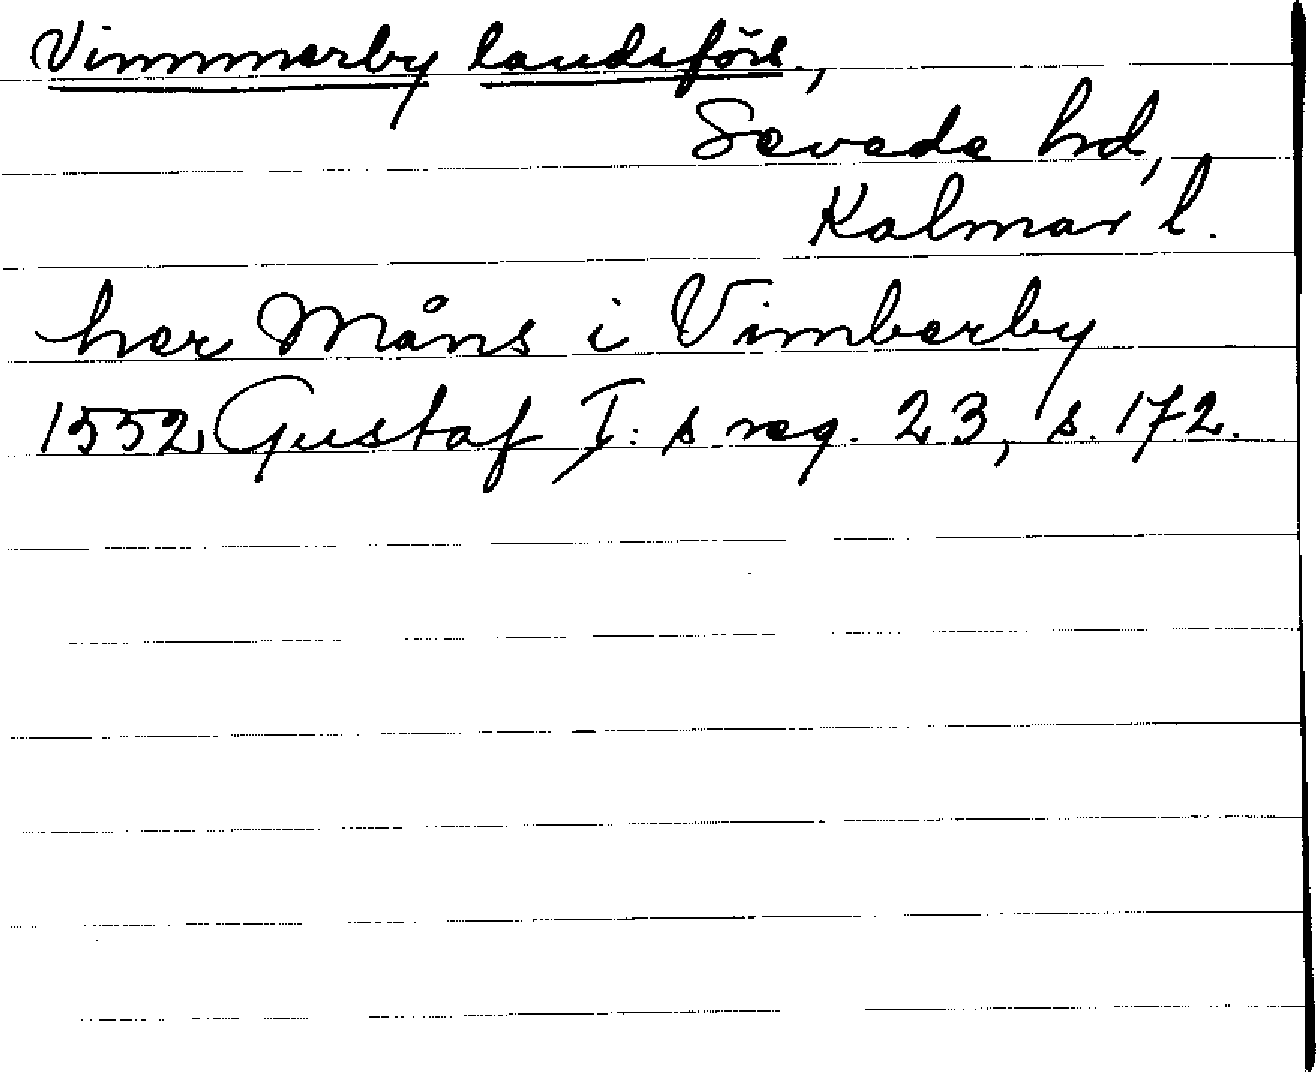 Vimmerby landsförs.,
Sevede hd,
Kalmar l.
her Måns i Vimberby
1552 Gustaf I: s reg. 23, s. 172.